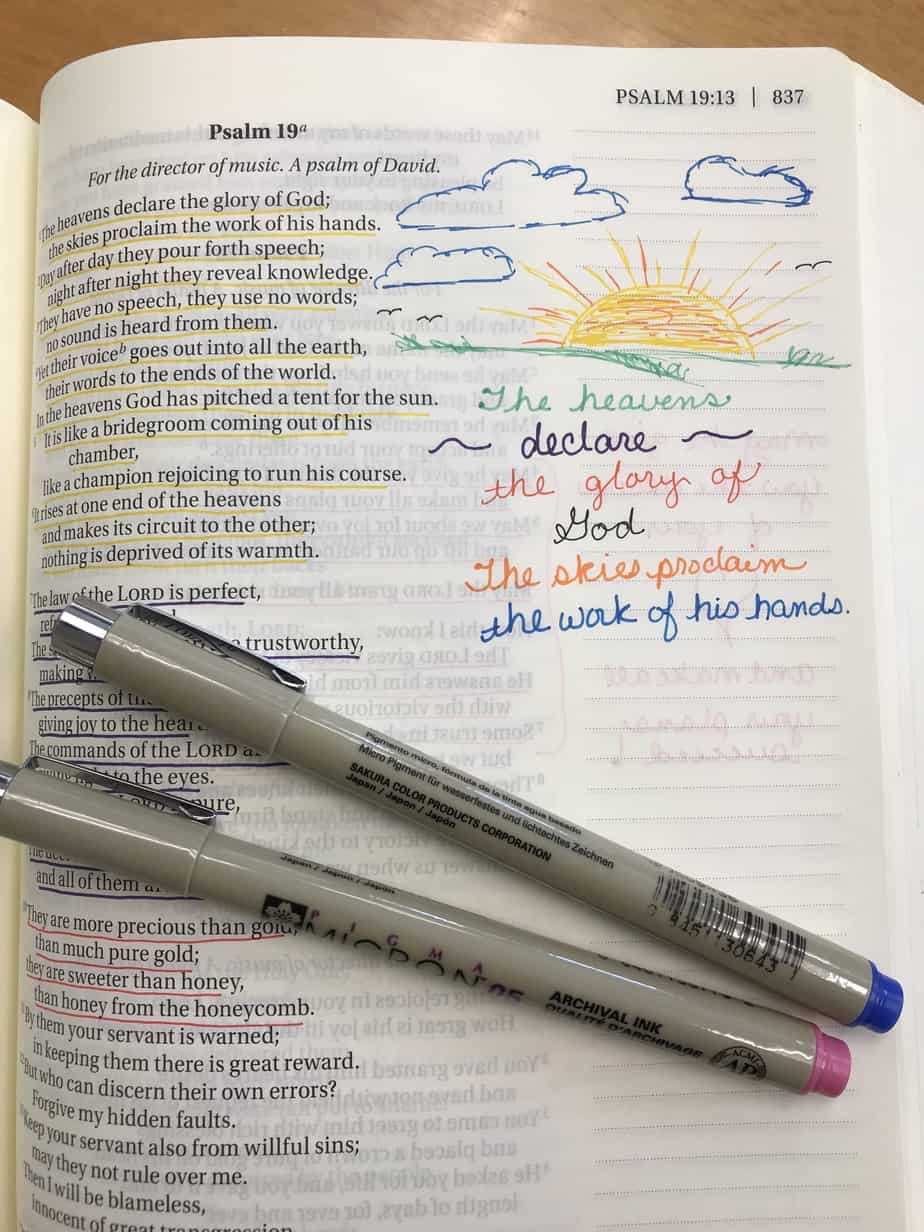 PSALM 19:13 | 837
Psalm 19ᵃ
For the director of music. A psalm of David.
¹The heavens declare the glory of God;
the skies proclaim the work of his hands.
²Day after day they pour forth speech;
night after night they reveal knowledge.
³They have no speech, they use no words;
no sound is heard from them.
⁴Yet their voiceᵇ goes out into all the earth,
their words to the ends of the world.
In the heavens God has pitched a tent for the sun.
⁵It is like a bridegroom coming out of his
chamber,
like a champion rejoicing to run his course.
⁶It rises at one end of the heavens
and makes its circuit to the other;
nothing is deprived of its warmth.
⁷The law of the LORD is perfect,
The trustworthy,
making
⁸The precepts of
giving joy to the heart
The commands of the LORD
to the eyes.
LORD pure,
and all of them
¹⁰They are more precious than gold,
than much pure gold;
they are sweeter than honey,
than honey from the honeycomb.
¹¹By them your servant is warned;
in keeping them there is great reward.
¹²But who can discern their own errors?
Forgive my hidden faults.
¹³Keep your servant also from willful sins;
may they not rule over me.
Then I will be blameless,
innocent of great transgression.
The heavens
~ declare ~
the glory of
God
The skies proclaim
the work of his hands.
Pigmento micro, fórmula de la tinta agua basado
Micro Pigment für wasserfestes und lichtechtes Zeichnen
SAKURA COLOR PRODUCTS CORPORATION
Japan / Japon / Japón
Japan / Japon / Japón
PIGMA
MICRON 05
ARCHIVAL INK
QUALITÉ D'ARCHIVAGE
ACMI
AP